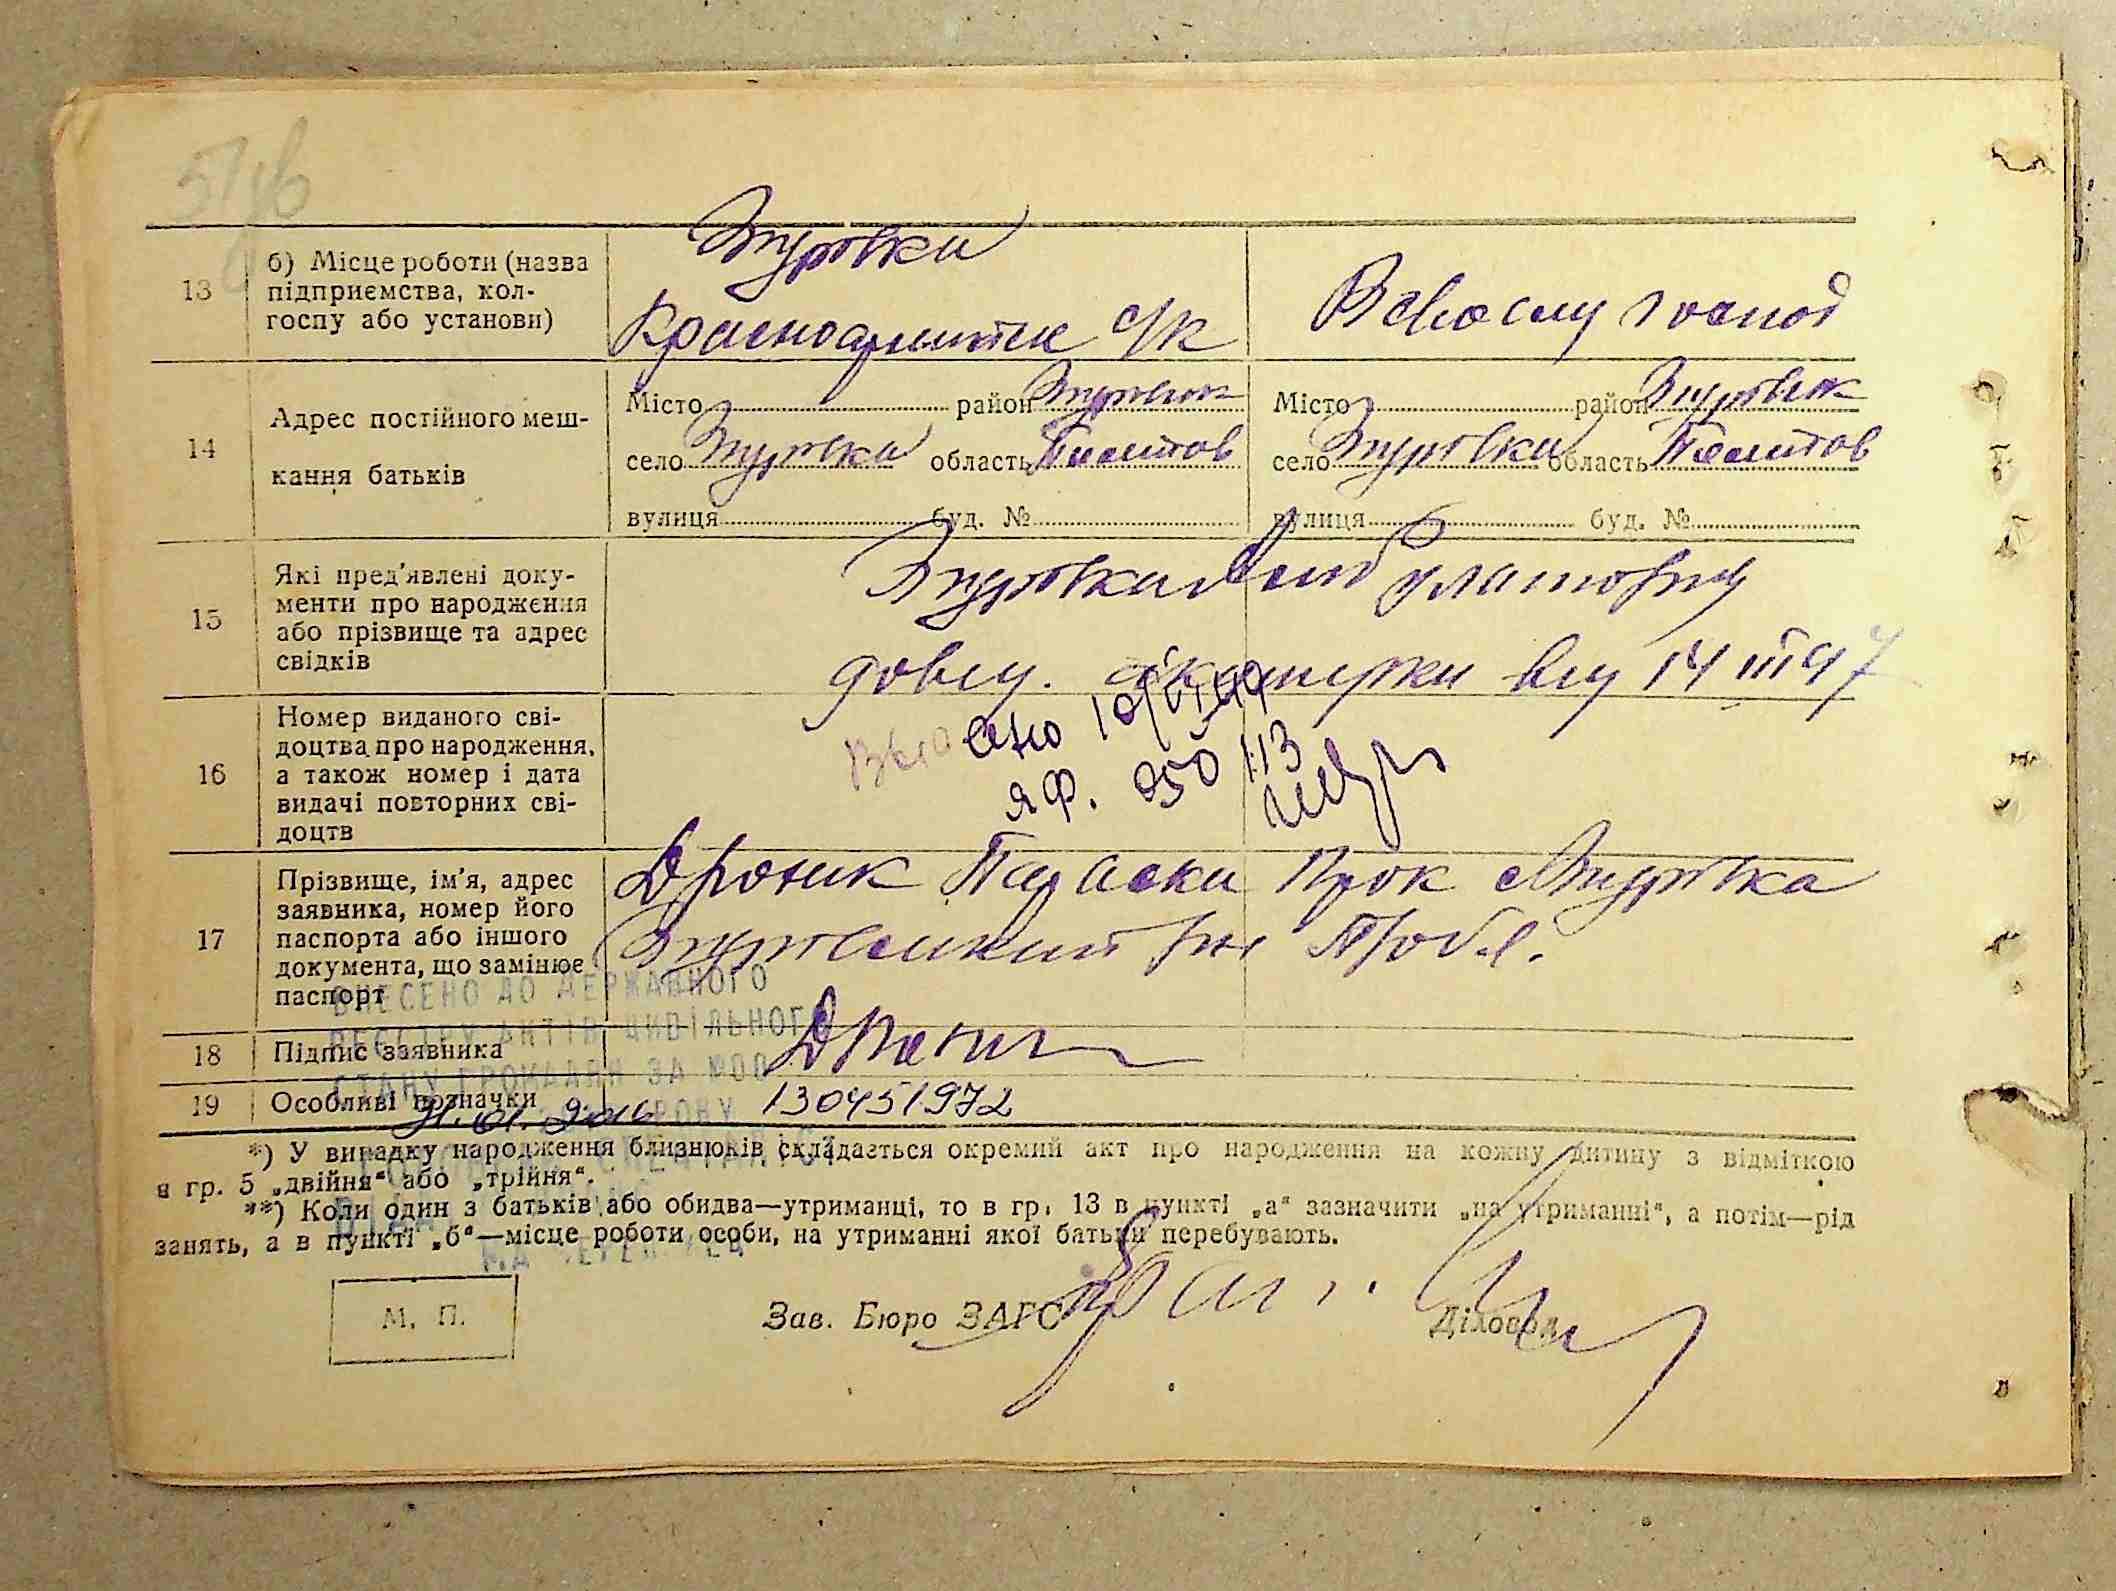 13
б) Місце роботи (назва
підприємства, кол-
госпу або установи)
Згуровка
Красноармійск с/к
В своєму господ
14
Адрес постійного меш-
кання батьків
Місто район Згуровск
село Згуровка область Полтов
вулиця буд. №
Місто район Згуровск
село Згуровка область Полтов
вулиця буд. №
15
Які пред'явлені доку-
менти про народження
або прізвище та адрес
свідків
Згуровка
довід. акушерки від 14 III 47
16
Номер виданого сві-
доцтва про народження,
а також номер і дата
видачі повторних сві-
доцтв
ЯФ. 050113
17
Прізвище, ім'я, адрес
заявника, номер його
паспорта або іншого
документа, що замінює
паспорт
Дроник Параска Прок с Згуровка
Згуровский рн П/обл.
ВНЕСЕНО ДО ДЕРЖАВНОГО
РЕЄСТРУ АКТІВ ЦИВІЛЬНОГО
СТАНУ ГРОМАДЯН ЗА №00
18
Підпис заявника
19
Особливі позначки
130451972
*) У випадку народження близнюків складається окремий акт про народження на кожну дитину з відміткою
в гр. 5 „двійня“ або „трійня“.
**) Коли один з батьків або обидва—утриманці, то в гр. 13 в пункті „а“ зазначити „на утриманні“, а потім—рід
занять, а в пункті „б“—місце роботи особи, на утриманні якої батьки перебувають.
М. П.
Зав. Бюро ЗАГС
Діловод